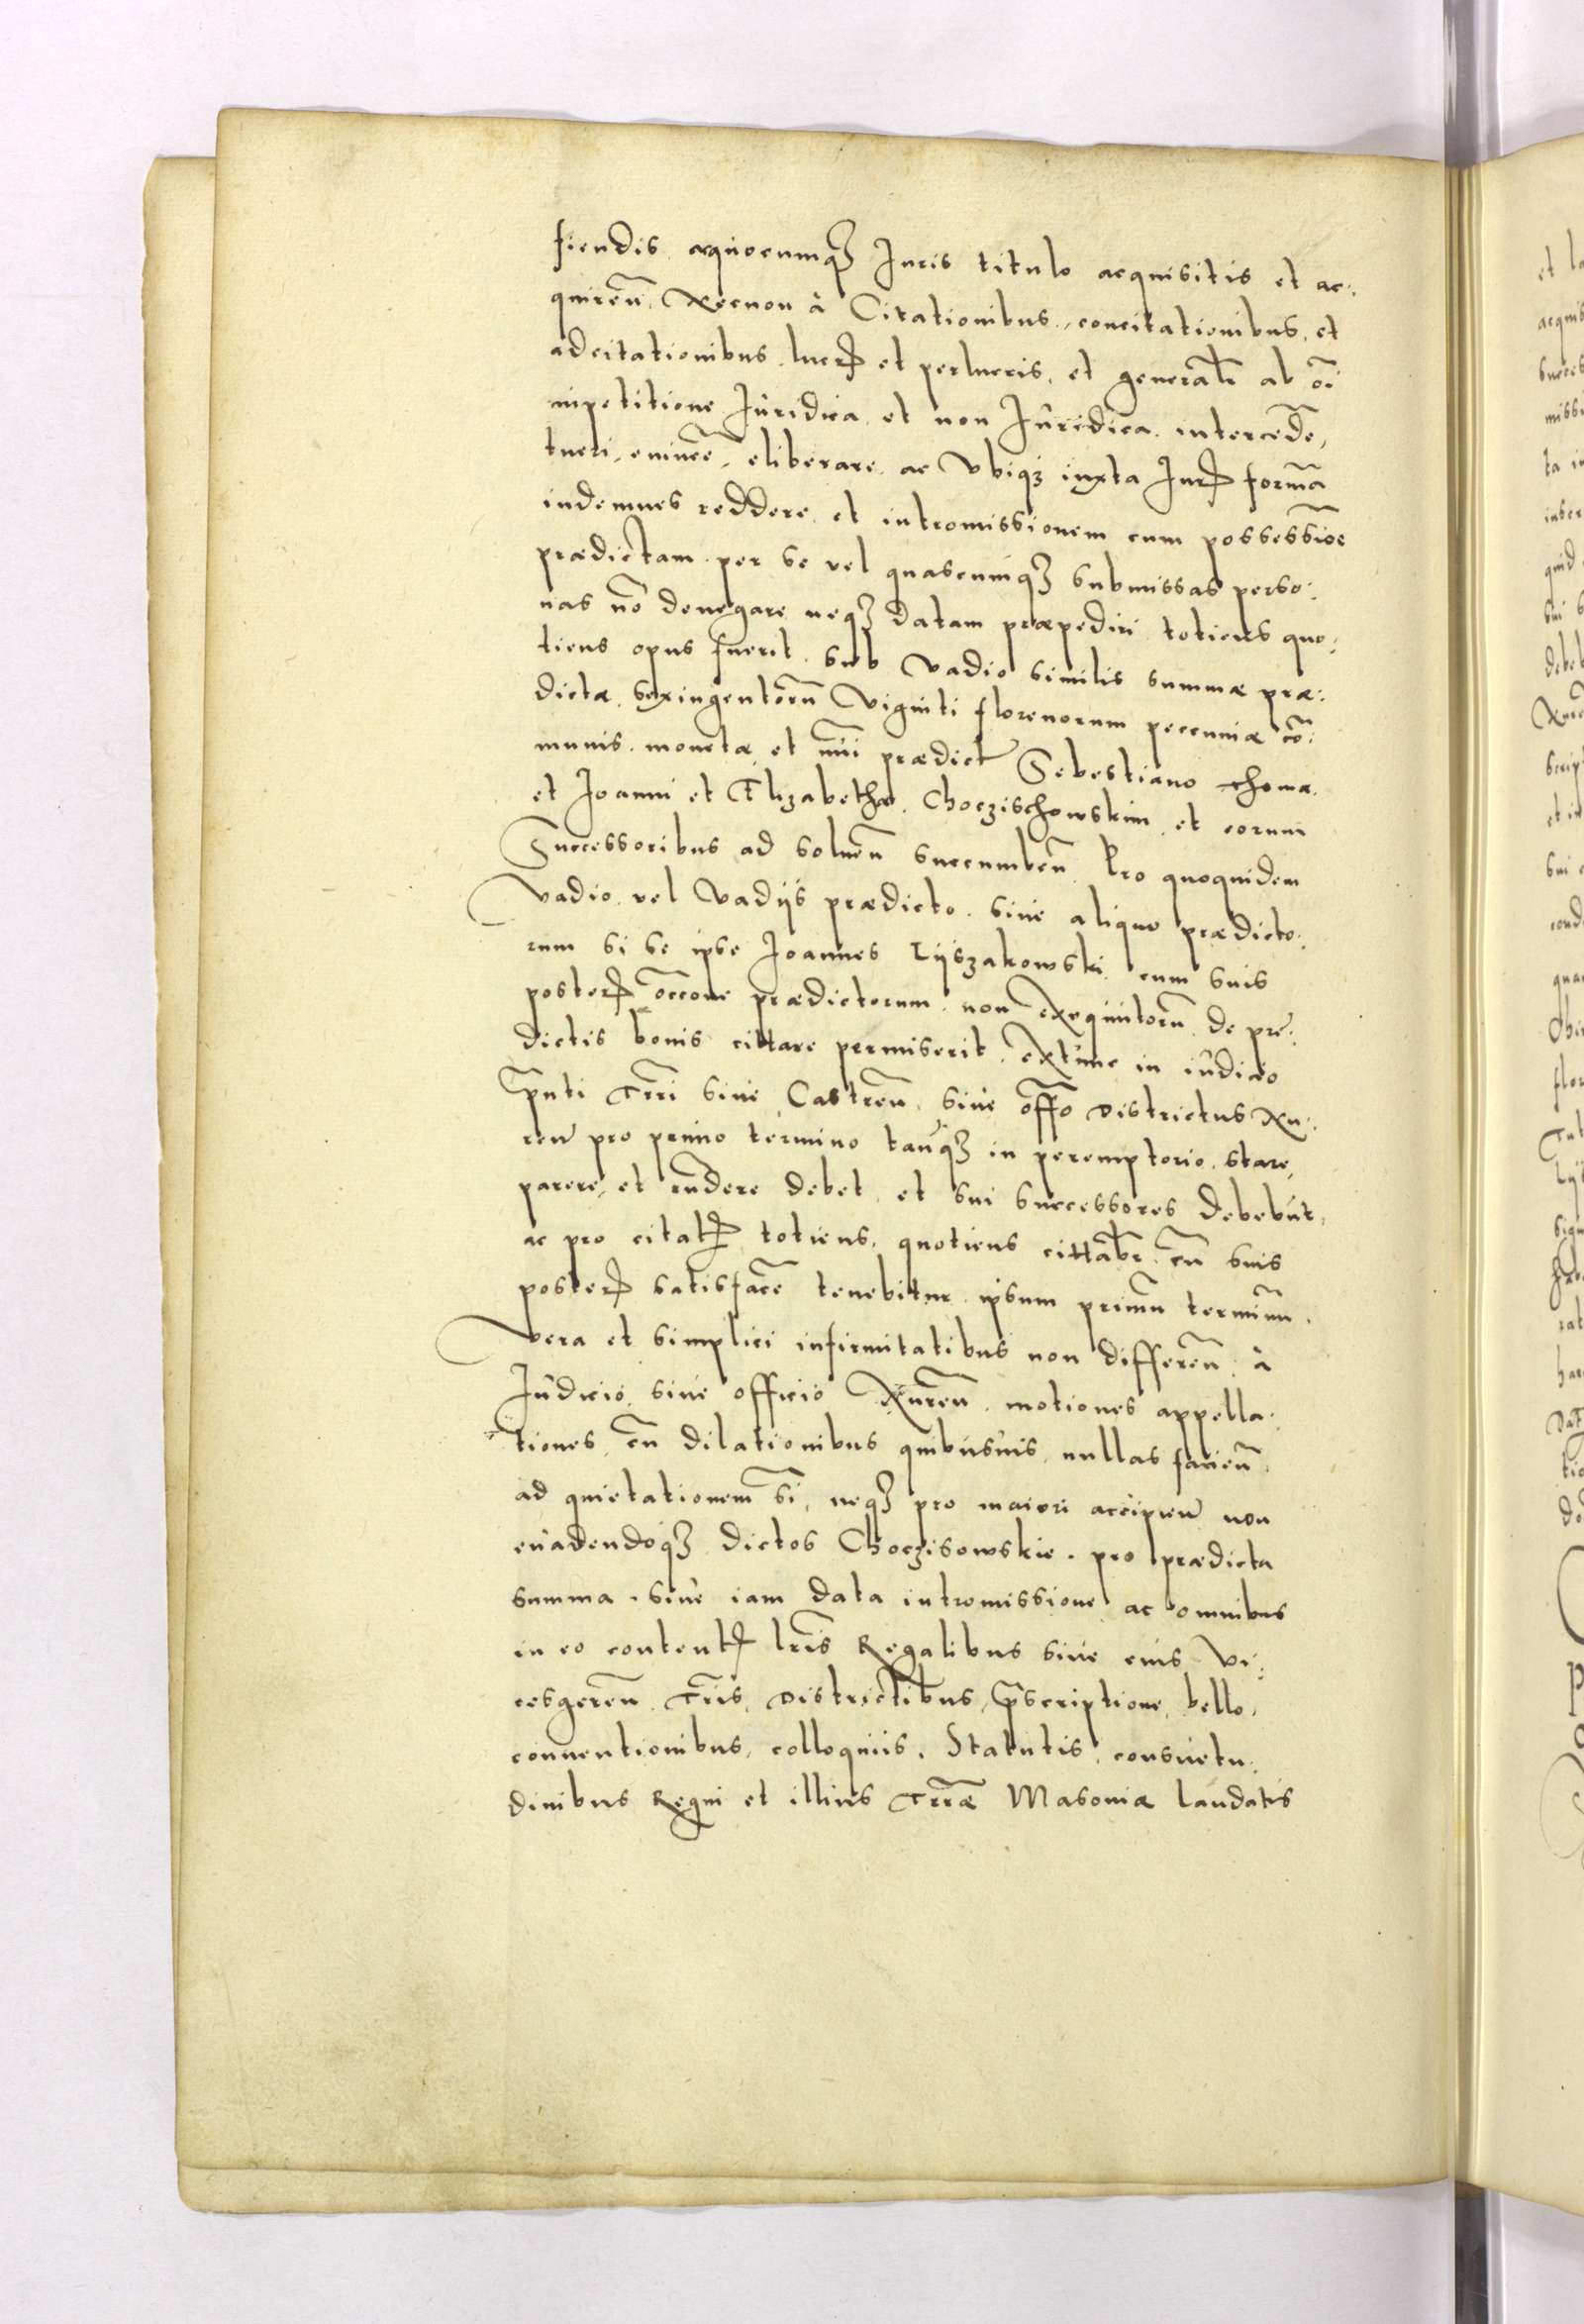 fiendis aquocumq3 Juris titulo acquisitis et ac:
quireñ. Necnon à Citationibus, concitationibus, et
adcitationibus lucr et perlucris, et generalr ab oi
impetitione Juridica et non Juridica intercede,
tueri, euincẽ, eliberare ac Vbiq3 iuxta Jur formã
indemnes reddere et intromissionem cum possessiõe
prædictam per se vel quascunq3 submissas perso:
nas nõ denegare neq3 datam præpediri totiens quo:
tiens opus fuerit. sub vadio similis summæ præ:
dictæ, sexingentorũ Viginti florenorum pecuniæ cõ:
munis monetæ et nũi prædict Sebestiano Thomæ
et Joanni et Elizabethæ Choczischowskim et eorum
Successoribus ad solueñ succumbeñ. Pro quoquidem
vadio vel Vadijs prædicto siue aliquo prædicto:
rum si se ipse Joannes Lyszakowski cum suis
poster occõne prædictorum non exequutorũ de præ:
dictis bonis cittare permiserit. extunc in iudicio
pñti Trri siue Castreñ siue offo Districtus Nu:
reñ pro primo termino tanq3 in peremptorio stare,
parere, et rñdere debet et sui successores debebũt,
ac pro citat totiens, quotiens cittabr cũ suis
poster satisfacẽ tenebitur ipsum primũ terminũ
vera et simplici infirmitatibus non differeñ. à
Judicio siue officio Nureñ. motiones appella:
tiones cũ dilationibus quibusuis nullas facieñ.
ad quietationem si, neq3 pro maiori accipieñ non
euadendoq3 dictos Choczisowskie. pro prædicta
summa siue iam data intromissione ac omnibus
in eo content lris Regalibus siue eius Vi:
cesgereñ Tris, Districtibus, pscriptione, bello,
conuentionibus, colloquiis, Statutis, consuetu:
dinibus Regni et illius Trræ Masouiæ laudatis